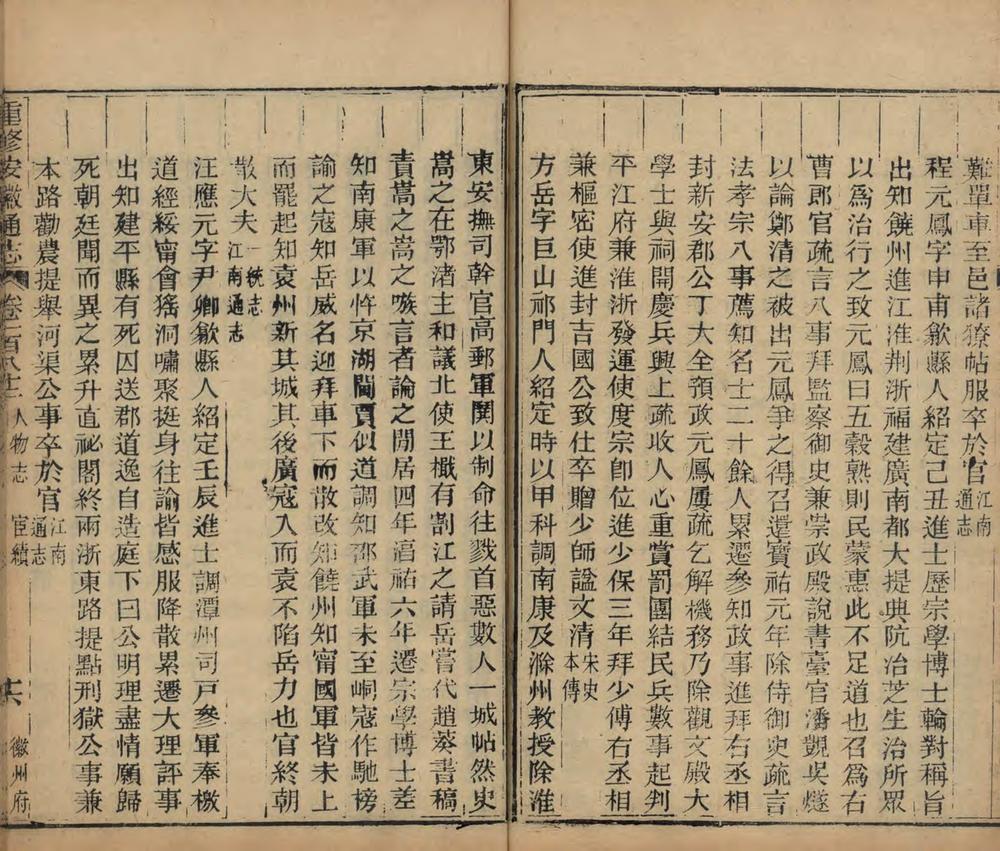 難單車至邑諸獠帖服卒於官江南通志
程元鳳字申甫歙縣人紹定己丑進士歷宗學博士輪對稱旨
出知饒州進江淮荆浙福建廣南都大提典阬冶芝生治所眾
以爲治行之致元鳳曰五穀熟則民蒙惠此不足道也召爲右
曹郎官疏言八事拜監察御史兼崇政殿說書臺官潘觀吳燧
以論鄭清之被出元鳳爭之得召還寶祐元年除侍御史疏言
法孝宗八事薦知名士二十餘人累遷參知政事進拜右丞相
封新安郡公丁大全預政元鳳屢疏乞解機務乃除觀文殿大
學士與祠開慶兵興上疏收人心重賞罰團結民兵數事起判
平江府兼淮浙發運使度宗卽位進少保三年拜少傅右丞相
兼樞密使進封吉國公致仕卒贈少師謚文清宋史本傳
方岳字巨山祁門人紹定時以甲科調南康及滁州教授除淮
東安撫司幹官高郵軍閧以制命往戮首惡數人一城帖然史
嵩之在鄂渚主和議北使王檝有割江之請岳嘗代趙葵書稿
責嵩之嵩之嗾言者論之閒居四年淳祐六年遷宗學博士差
知南康軍以忤京湖閫賈似道調知邵武軍未至峒寇作馳榜
諭之寇知岳威名迎拜車下而散改知饒州知甯國軍皆未上
而罷起知袁州新其城其後廣寇入而袁不陷岳力也官終朝
散大夫一統志江南通志
汪應元字尹卿歙縣人紹定壬辰進士調潭州司戶參軍奉檄
道經綏甯會猺洞嘯聚挺身往諭皆感服降散累遷大理評事
出知建平縣有死囚送郡道逸自造庭下曰公明理盡情願歸
死朝廷聞而異之累升直祕閣終兩浙東路提點刑獄公事兼
本路勸農提舉河渠公事卒於官江南通志
重修安徽通志 卷 百 人物志 宦績 徽州府